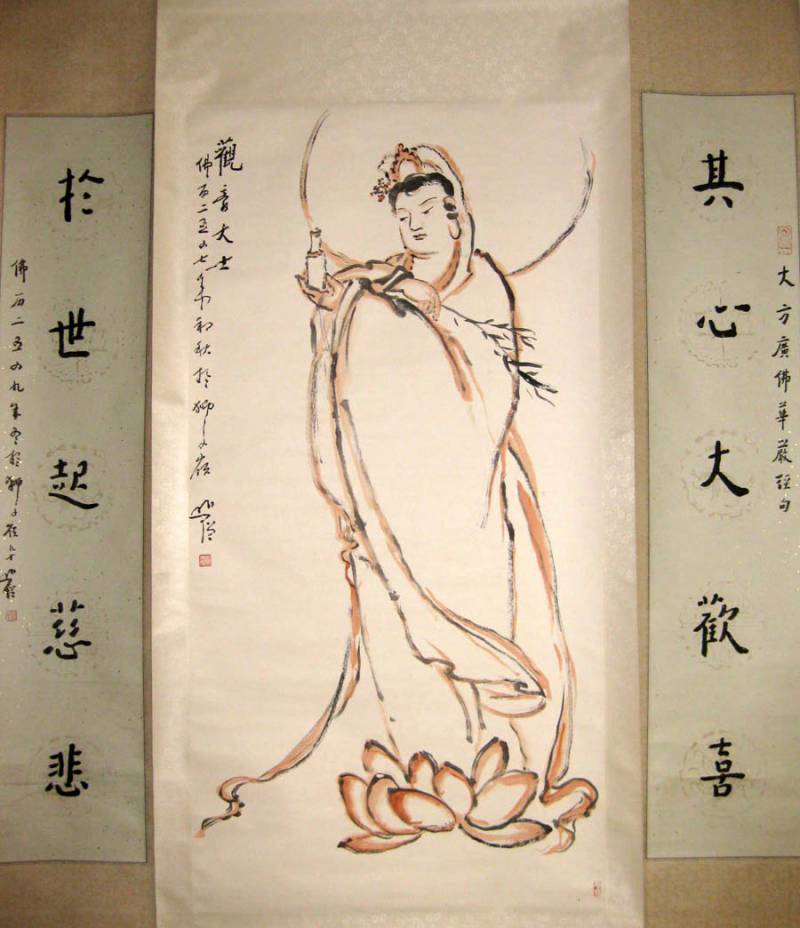 其心大歡喜
大方廣佛華嚴經句
觀音大士
佛曆二五四七年初秋於獅子嶺
於世起慈悲
佛曆二五四九年冬於獅子嶺